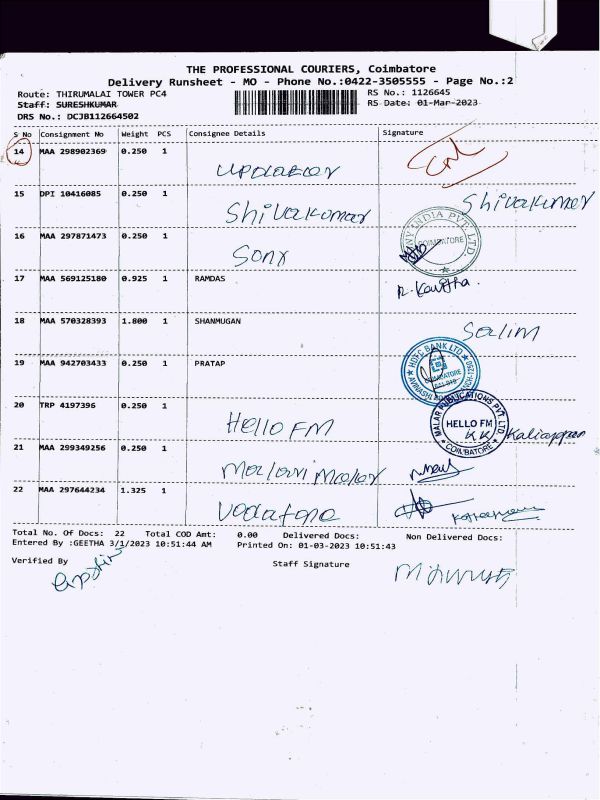 THE PROFESSIONAL COURIERS, Coimbatore
Delivery Runsheet - MO - Phone No.:0422-3505555 - Page No.:2
Route: THIRUMALAI TOWER PC4
RS No.: 1126645
Staff: SURESHKUMAR
RS Date: 01-Mar-2023
DRS No.: DCJB112664502
S No Consignment No Weight PCS Consignee Details Signature
14 MAA 298902369 0.250 1
15 DPI 10416085 0.250 1 Shivakumar Shivakumar
16 MAA 297871473 0.250 1 Sony
INDIA PVT. LTD.
COIMBATORE
17 MAA 569125180 0.925 1 RAMDAS R. Kavitha.
18 MAA 570328393 1.800 1 SHANMUGAN Salim
19 MAA 942703433 0.250 1 PRATAP
HDFC BANK LTD
COIMBATORE
20 TRP 4197396 0.250 1 Hello FM
MALAR PUBLICATIONS PVT. LTD
HELLO FM
COIMBATORE
21 MAA 299349256 0.250 1 Malar
22 MAA 297644234 1.325 1 Vodafone
Total No. Of Docs: 22 Total COD Amt: 0.00 Delivered Docs: Non Delivered Docs:
Entered By :GEETHA 3/1/2023 10:51:44 AM Printed On: 01-03-2023 10:51:43
Verified By Staff Signature